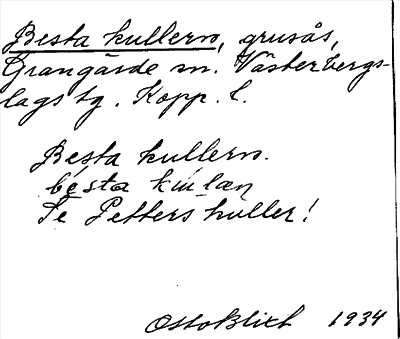 Besta kullern, grusås,
Grangärde sn. Västerbergs-
lags tg. Kopp. l.
Besta kullern.
besta
Se Petters kuller!
Otto Blixt 1934